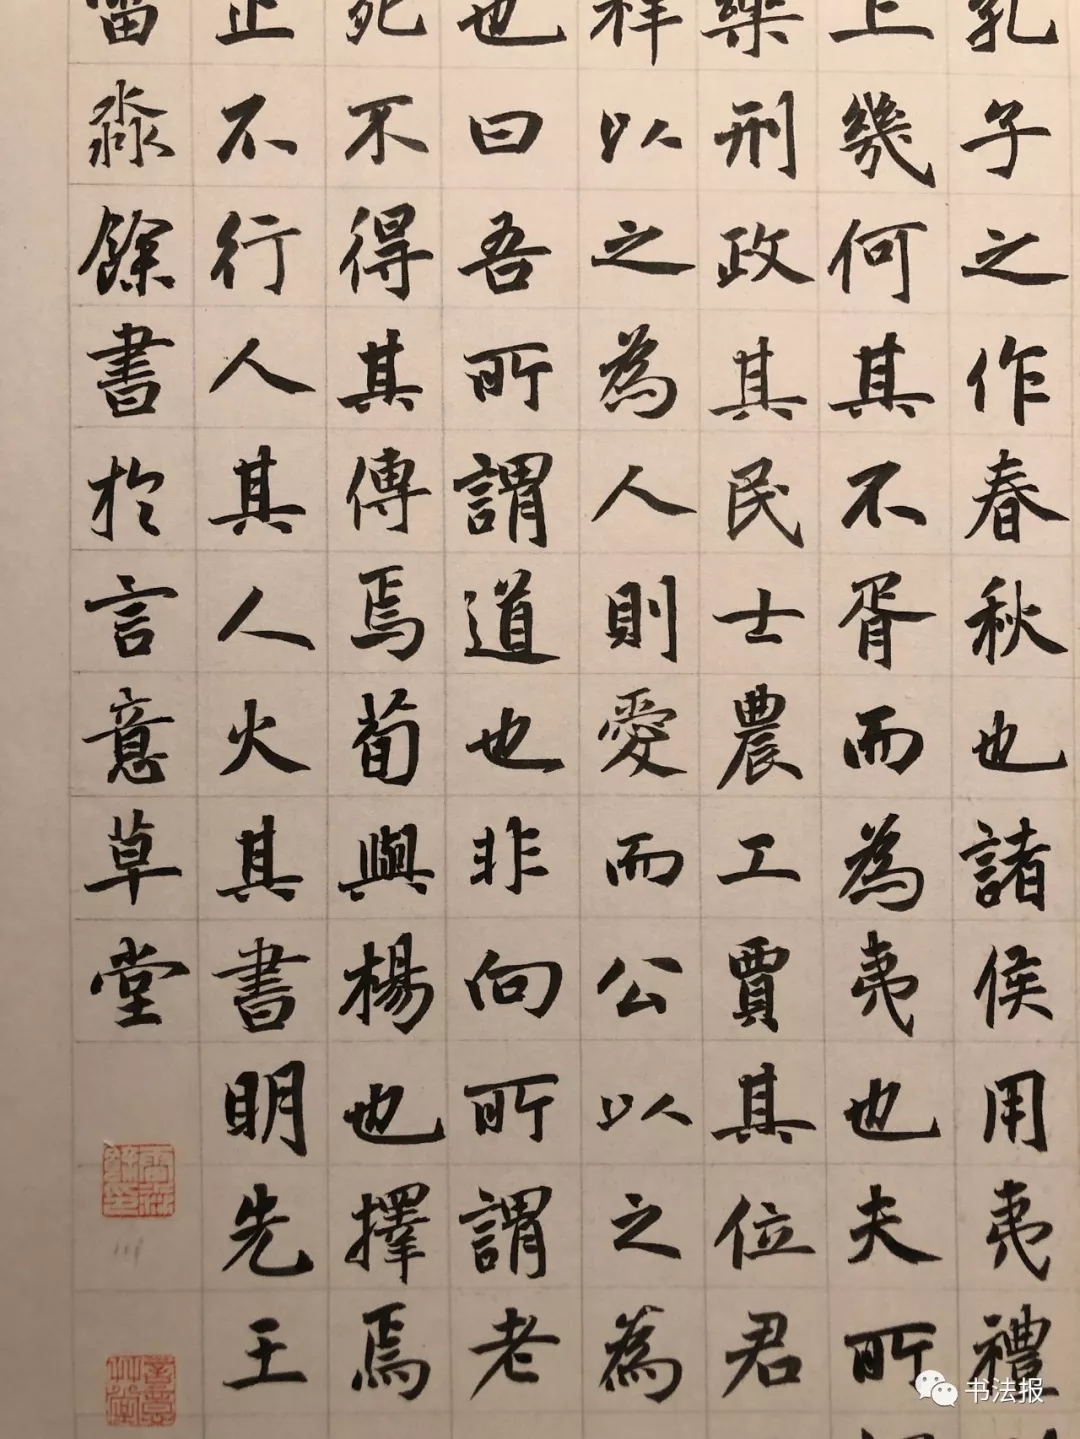 孔子之作春秋也諸侯用夷禮
上幾何其不胥而為夷也夫所
樂刑政其民士農工賈其位君
祥以之為人則愛而公以之為
也曰吾所謂道也非向所謂老
死不得其傳焉荀與楊也擇焉
止不行人其人火其書明先王
淼餘書於言意草堂
言意艸堂
书法报